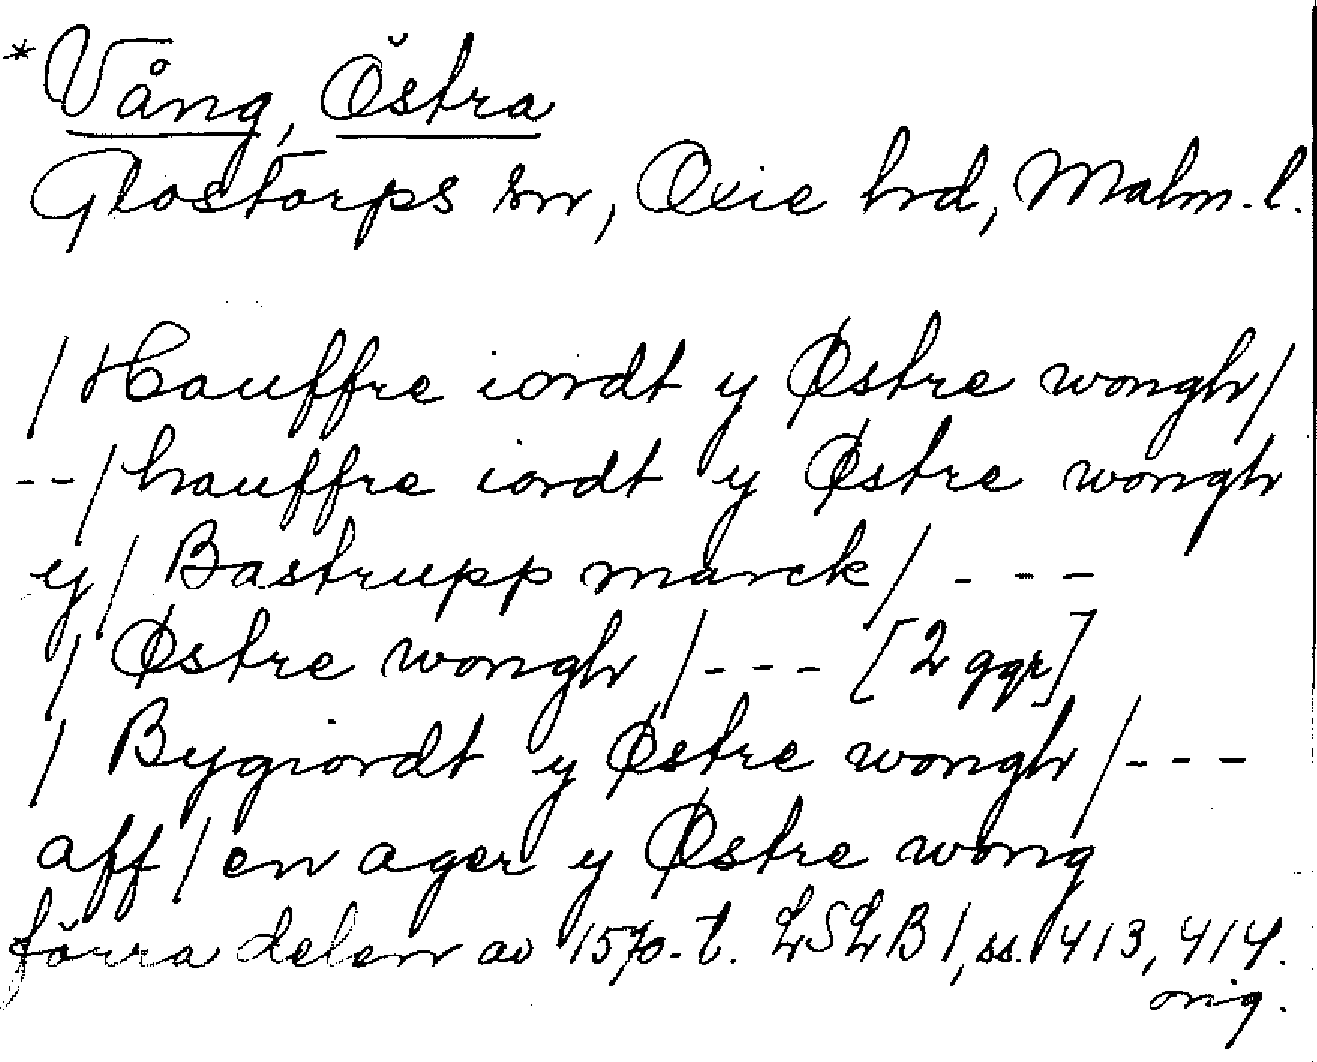 *Vång, Östra
Glostorps sn, Oxie hrd, Malm. l.
/Hauffre iordt y Østre wongh/
--/hauffre iordt y Østre wongh
y/ Bastrupp marck/ ---
/ Østre wongh /--- [2 ggr]
/ Bygiordt y Østre wongh/---
aff/en ager y Østre wong
förra delen av 1570-t. LSLB 1, ss. 413, 414.
orig.